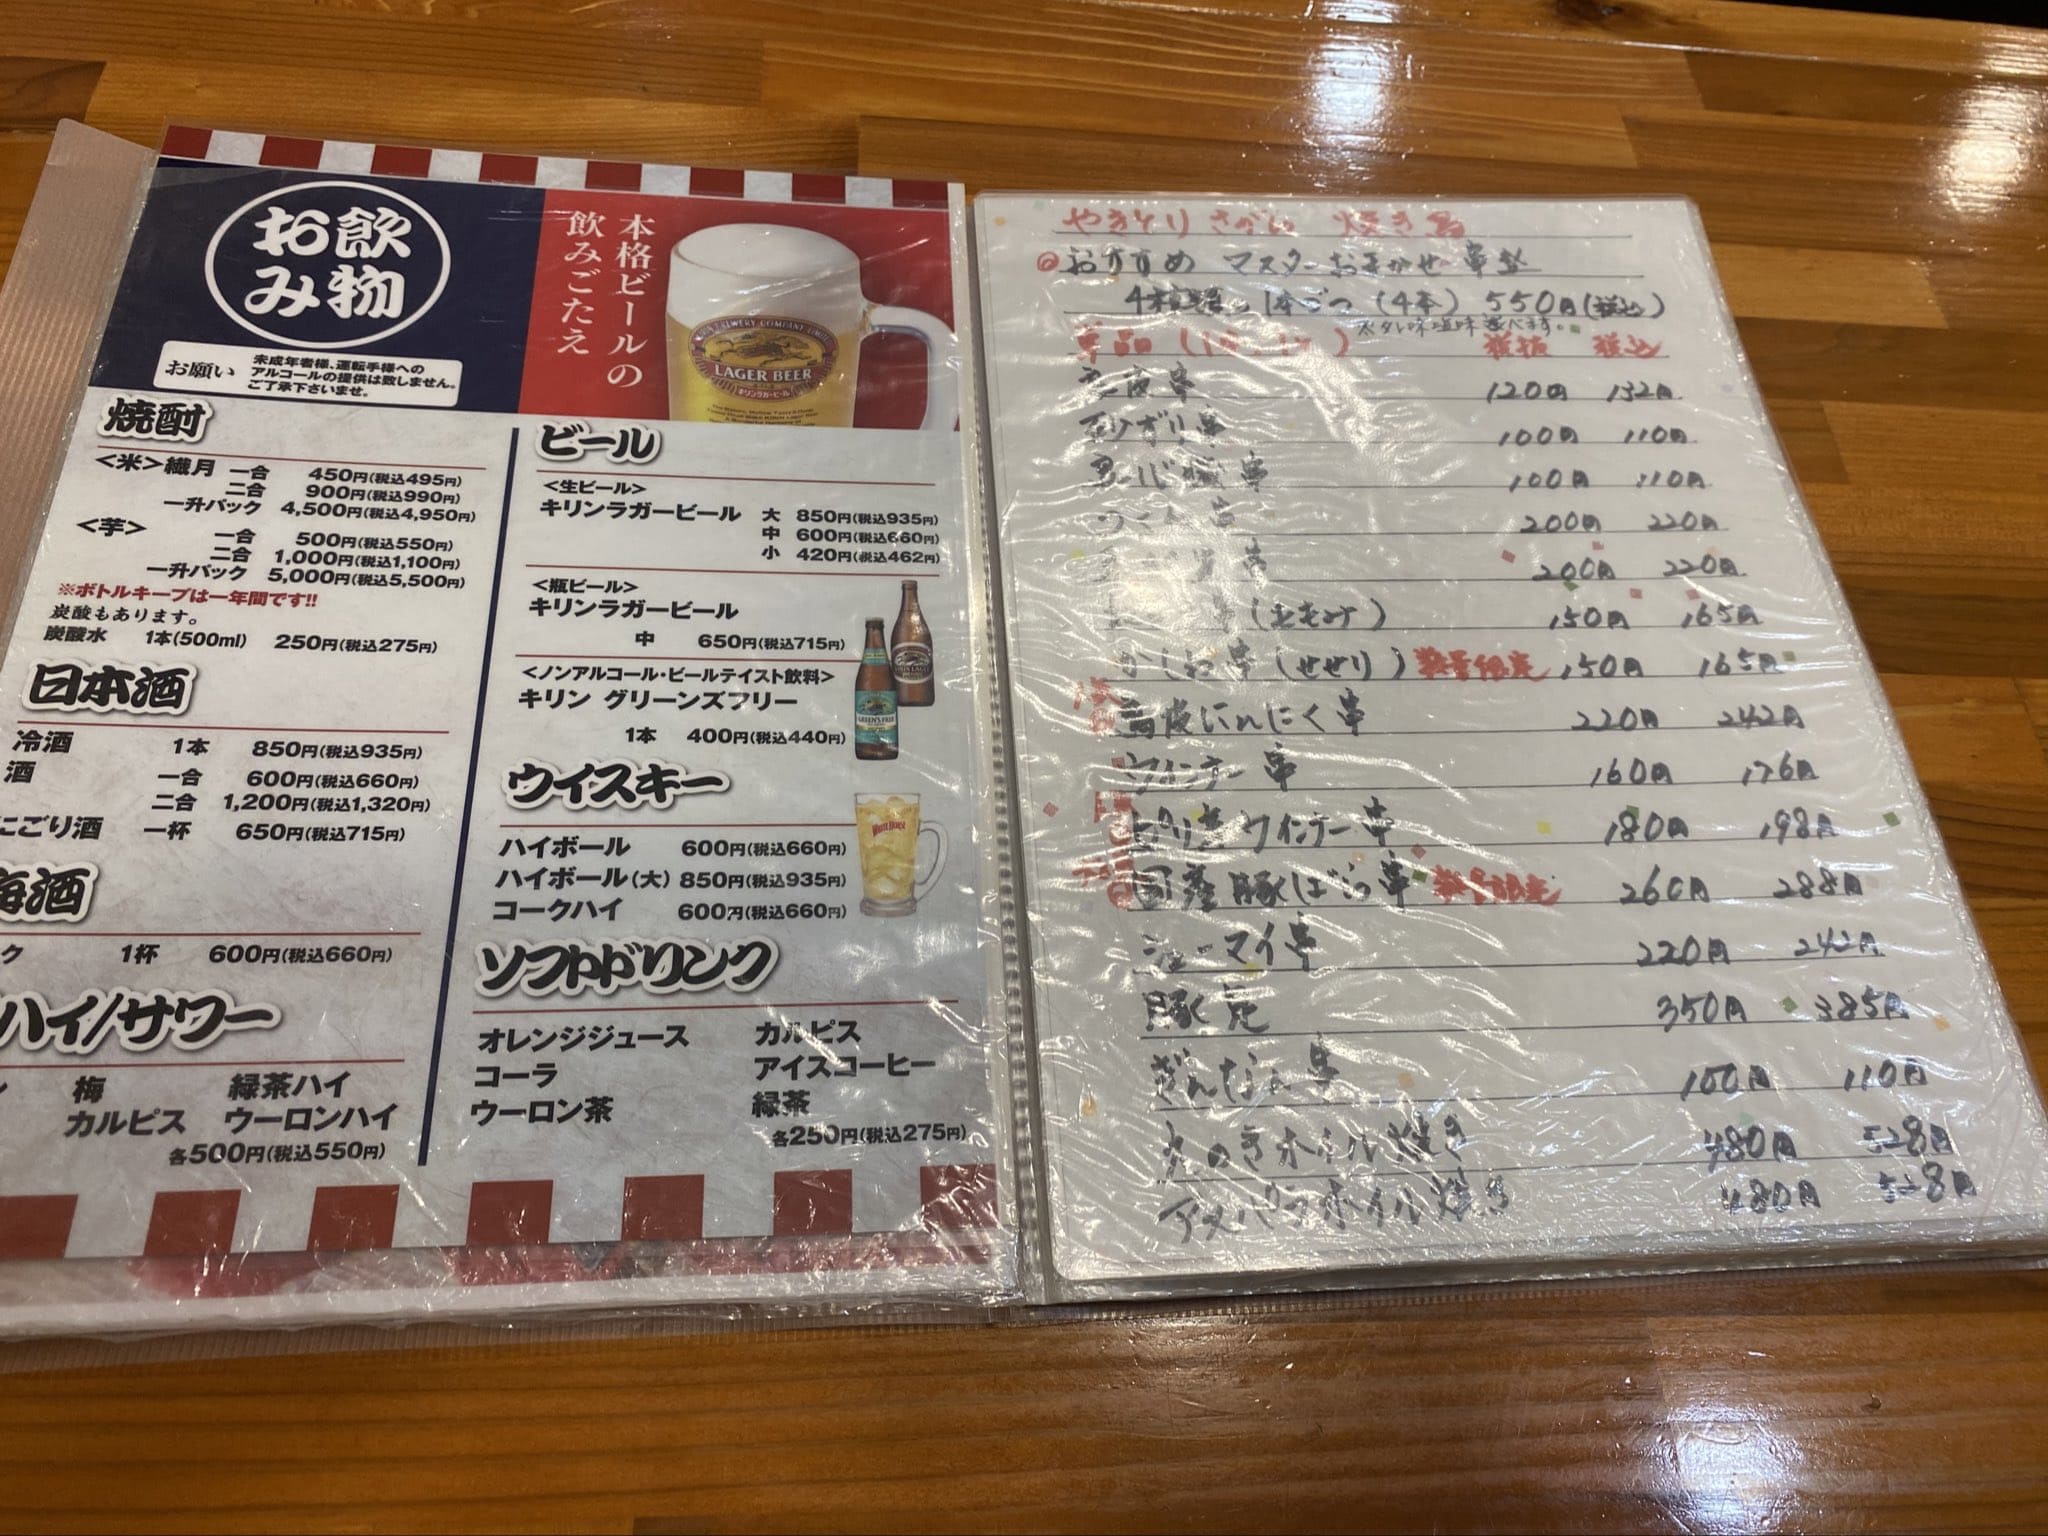 お飲み物
本格ビールの
飲みごたえ
LAGER BEER
キリンラガービール
お願い
未成年者様、運転手様への
アルコールの提供は致しません。
ご了承下さいませ。
焼酎
<米>繊月 一合 450円(税込495円)
二合 900円(税込990円)
一升パック 4,500円(税込4,950円)
<芋> 一合 500円(税込550円)
二合 1,000円(税込1,100円)
一升パック 5,000円(税込5,500円)
※ボトルキープは一年間です!!
炭酸もあります。
炭酸水 1本(500ml) 250円(税込275円)
日本酒
冷酒 1本 850円(税込935円)
酒 一合 600円(税込660円)
二合 1,200円(税込1,320円)
にごり酒 一杯 650円(税込715円)
梅酒
ク 1杯 600円(税込660円)
ハイ/サワー
梅 緑茶ハイ
カルピス ウーロンハイ
各500円(税込550円)
ビール
<生ビール>
キリンラガービール 大 850円(税込935円)
中 600円(税込660円)
小 420円(税込462円)
<瓶ビール>
キリンラガービール
中 650円(税込715円)
<ノンアルコール・ビールテイスト飲料>
キリン グリーンズフリー
1本 400円(税込440円)
ウイスキー
ハイボール 600円(税込660円)
ハイボール(大) 850円(税込935円)
コークハイ 600円(税込660円)
WHITE HORSE
ソフトドリンク
オレンジジュース カルピス
コーラ アイスコーヒー
ウーロン茶 緑茶
各250円(税込275円)
やきとり 焼き鳥
おすすめ マスターおまかせ 串盛
1本づつ (4本) 550円(税込)
タレ味塩味選べます。
単品 税抜 税込
串 120円 132円
砂ずり串 100円 110円
串 100円 110円
200円 220円
串 200円 220円
150円 165円
かしわ串 (せせり) 数量限定 150円 165円
鳥皮にんにく串 220円 242円
ウインナー串 160円 176円
ピリ辛ウインナー串 180円 198円
国産豚ばら串 数量限定 260円 288円
シューマイ串 220円 242円
豚足 350円 385円
ぎんなん串 100円 110円
えのきホイル焼き 480円 528円
アスパラホイル焼き 480円 528円